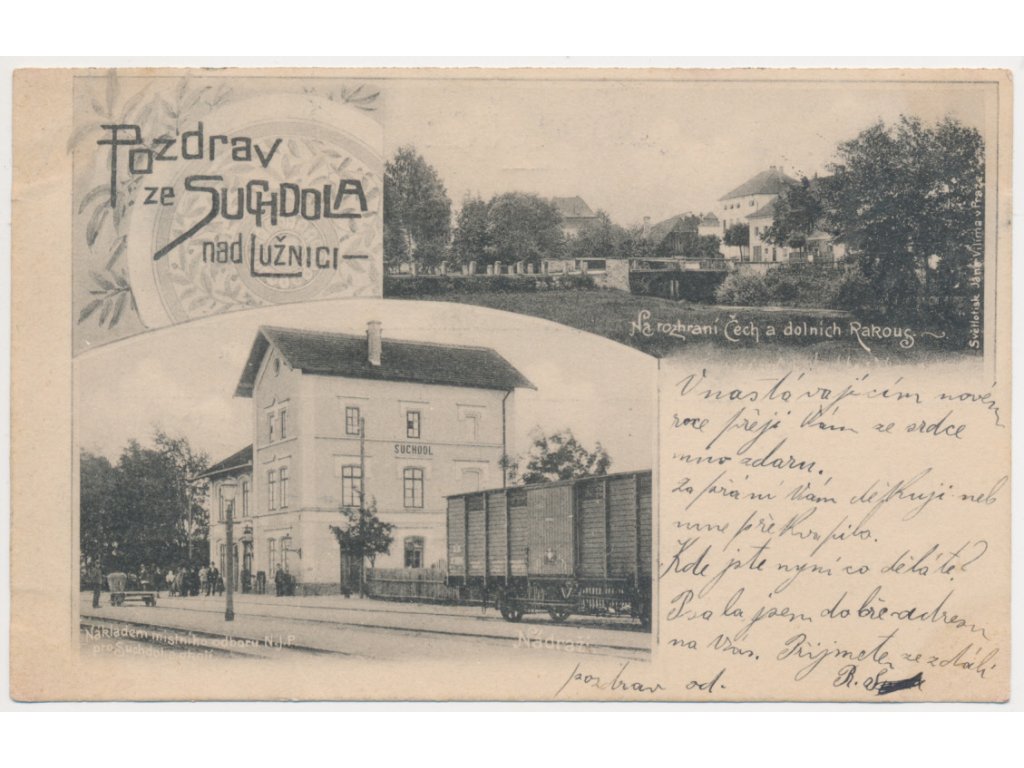 Pozdrav
ze SUCHDOLA
nad LUŽNICI
Na rozhraní Čech a dolních Rakous
Světlotisk Jana Vilíma v Praze
SUCHDOL
Nákladem místního odboru N.J.P.
pro Suchdol
Nádraží
V nastávajícím novém
roce přeji Vám ze srdce
mno zdaru.
Za přání Vám děkuji neb
mne překvapilo.
Kde jste nyní co děláte?
Psala jsem dobře adresu
na Vás. Přijmete ze zdáli
pozdrav od. R.